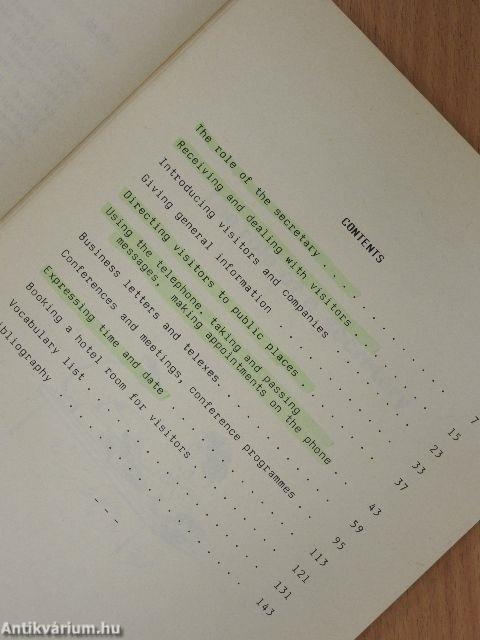 CONTENTS
The role of the secretary . . . . . . . . . . . 7
Receiving and dealing with visitors . . . . . . 15
Introducing visitors and companies . . . . . . 23
Giving general information . . . . . . . . . . 33
Directing visitors to public places . . . . . . 37
Using the telephone, taking and passing
messages, making appointments on the phone . . 43
Business letters and telexes . . . . . . . . . 59
Conferences and meetings, conference programmes . 95
Expressing time and date . . . . . . . . . . . 113
Booking a hotel room for visitors . . . . . . . 121
Vocabulary list . . . . . . . . . . . . . . . 131
ibliography . . . . . . . . . . . . . . . . . 143
- - -
Antikvárium.hu